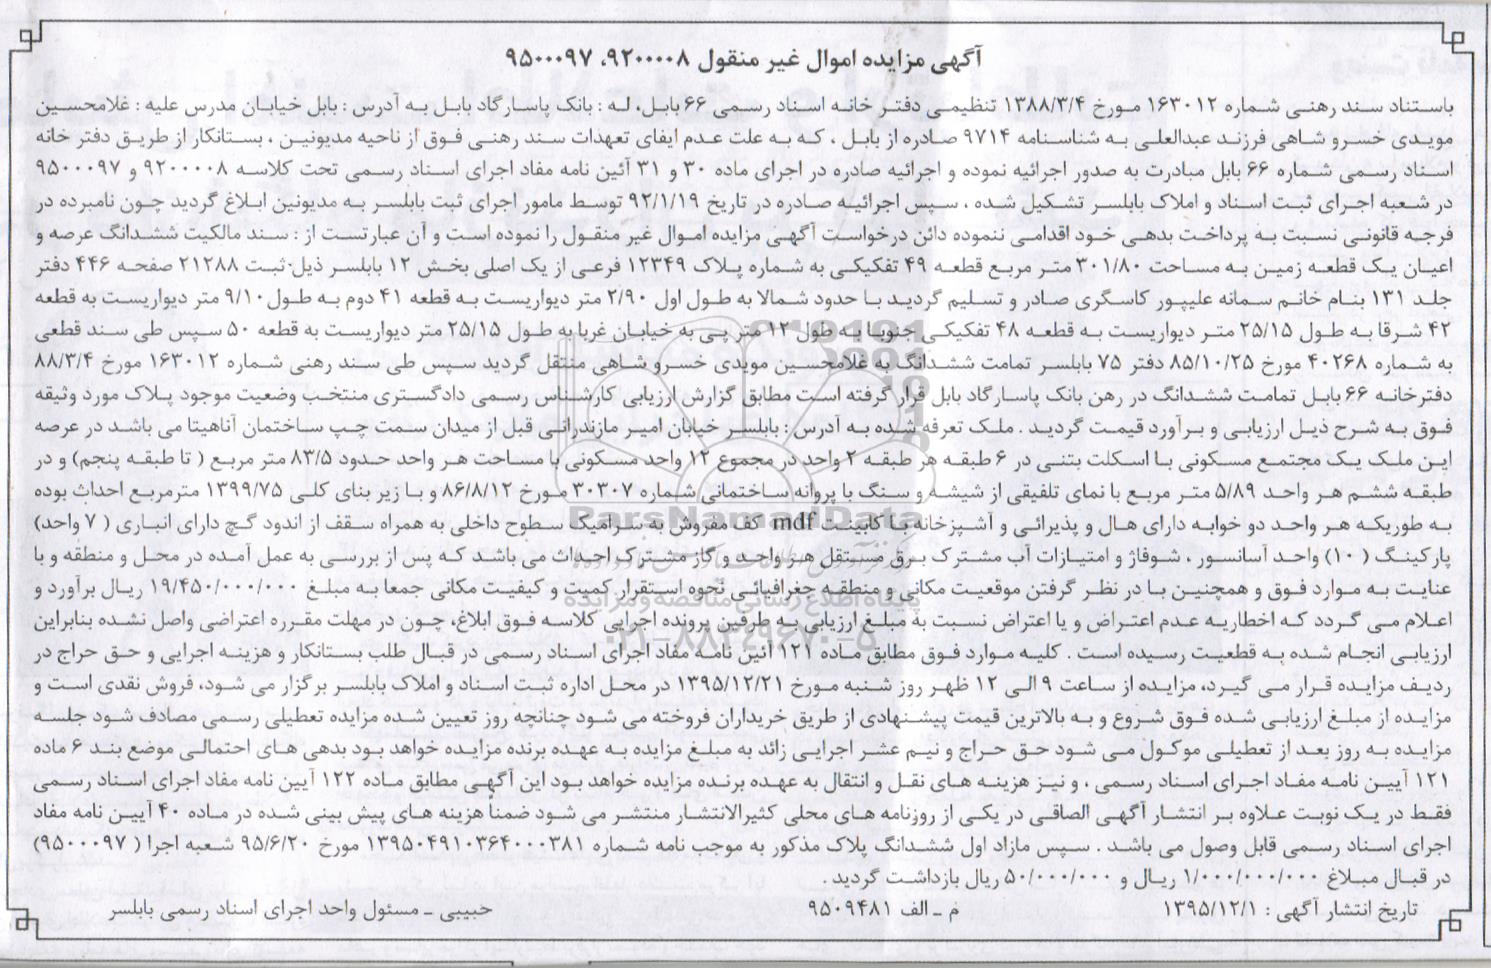 آگهی مزایده اموال غیر منقول ۹۲۰۰۰۰۸، ۹۵۰۰۰۹۷
باستناد سند رهنی شماره ۱۶۳۰۱۲ مورخ ۱۳۸۸/۳/۴ تنظیمی دفتر خانه اسناد رسمی ۶۶ بابل، له : بانک پاسارگاد بابل به آدرس : بابل خیابان مدرس علیه : غلامحسین
مویدی خسرو شاهی فرزند عبدالعلی به شناسنامه ۹۷۱۴ صادره از بابل ، که به علت عدم ایفای تعهدات سند رهنی فوق از ناحیه مدیونین ، بستانکار از طریق دفتر خانه
اسناد رسمی شماره ۶۶ بابل مبادرت به صدور اجرائیه نموده و اجرائیه صادره در اجرای ماده ۳۰ و ۳۱ آئین نامه مفاد اجرای اسناد رسمی تحت کلاسه ۹۲۰۰۰۰۸ و ۹۵۰۰۰۹۷
در شعبه اجرای ثبت اسناد و املاک بابلسر تشکیل شده ، سپس اجرائیه صادره در تاریخ ۹۲/۱/۱۹ توسط مامور اجرای ثبت بابلسر به مدیونین ابلاغ گردید چون نامبرده در
فرجه قانونی نسبت به پرداخت بدهی خود اقدامی ننموده دائن درخواست آگهی مزایده اموال غیر منقول را نموده است و آن عبارتست از : سند مالکیت ششدانگ عرصه و
اعیان یک قطعه زمین به مساحت ۳۰۱/۸۰ متر مربع قطعه ۴۹ تفکیکی به شماره پلاک ۱۲۳۴۹ فرعی از یک اصلی بخش ۱۲ بابلسر ذیل ثبت ۲۱۲۸۸ صفحه ۴۴۶ دفتر
جلد ۱۳۱ بنام خانم سمانه علیپور کاسگری صادر و تسلیم گردید با حدود شمالا به طول اول ۲/۹۰ متر دیواریست به قطعه ۴۱ دوم به طول ۹/۱۰ متر دیواریست به قطعه
۴۲ شرقا به طول ۲۵/۱۵ متر دیواریست به قطعه ۴۸ تفکیکی جنوبا به طول ۱۲ متر پی به خیابان غربا به طول ۲۵/۱۵ متر دیواریست به قطعه ۵۰ سپس طی سند قطعی
به شماره ۴۰۲۶۸ مورخ ۸۵/۱۰/۲۵ دفتر ۷۵ بابلسر تمامت ششدانگ به غلامحسین مویدی خسرو شاهی منتقل گردید سپس طی سند رهنی شماره ۱۶۳۰۱۲ مورخ ۸۸/۳/۴
دفترخانه ۶۶ بابل تمامت ششدانگ در رهن بانک پاسارگاد بابل قرار گرفته است مطابق گزارش ارزیابی کارشناس رسمی دادگستری منتخب وضعیت موجود پلاک مورد وثیقه
فوق به شرح ذیل ارزیابی و برآورد قیمت گردید . ملک تعرفه شده به آدرس : بابلسر خیابان امیر مازندرانی قبل از میدان سمت چپ ساختمان آناهیتا می باشد در عرصه
این ملک یک مجتمع مسکونی با اسکلت بتنی در ۶ طبقه هر طبقه ۲ واحد در مجموع ۱۲ واحد مسکونی با مساحت هر واحد حدود ۸۳/۵ متر مربع ( تا طبقه پنجم) و در
طبقه ششم هر واحد ۵/۸۹ متر مربع با نمای تلفیقی از شیشه و سنگ با پروانه ساختمانی شماره ۳۰۳۰۷ مورخ ۸۶/۸/۱۲ و با زیر بنای کلی ۱۳۹۹/۷۵ مترمربع احداث بوده
به طوریکه هر واحد دو خوابه دارای هال و پذیرائی و آشپزخانه با کابینت mdf کف مفروش به سرامیک سطوح داخلی به همراه سقف از اندود گچ دارای انباری ( ۷ واحد)
پارکینگ ( ۱۰) واحد آسانسور ، شوفاژ و امتیازات آب مشترک برق مستقل هر واحد و گاز مشترک احداث می باشد که پس از بررسی به عمل آمده در محل و منطقه و با
عنایت به موارد فوق و همچنین با در نظر گرفتن موقعیت مکانی و منطقه جغرافیائی نحوه استقرار کمیت و کیفیت مکانی جمعا به مبلغ ۱۹/۴۵۰/۰۰۰/۰۰۰ ریال برآورد و
اعلام می گردد که اخطاریه عدم اعتراض و یا اعتراض نسبت به مبلغ ارزیابی به طرفین پرونده اجرایی کلاسه فوق ابلاغ، چون در مهلت مقرره اعتراضی واصل نشده بنابراین
ارزیابی انجام شده به قطعیت رسیده است . کلیه موارد فوق مطابق ماده ۱۲۱ آئین نامه مفاد اجرای اسناد رسمی در قبال طلب بستانکار و هزینه اجرایی و حق حراج در
ردیف مزایده قرار می گیرد، مزایده از ساعت ۹ الی ۱۲ ظهر روز شنبه مورخ ۱۳۹۵/۱۲/۲۱ در محل اداره ثبت اسناد و املاک بابلسر برگزار می شود، فروش نقدی است و
مزایده از مبلغ ارزیابی شده فوق شروع و به بالاترین قیمت پیشنهادی از طریق خریداران فروخته می شود چنانچه روز تعیین شده مزایده تعطیلی رسمی مصادف شود جلسه
مزایده به روز بعد از تعطیلی موکول می شود حق حراج و نیم عشر اجرایی زائد به مبلغ مزایده به عهده برنده مزایده خواهد بود بدهی های احتمالی موضع بند ۶ ماده
۱۲۱ آیین نامه مفاد اجرای اسناد رسمی ، و نیز هزینه های نقل و انتقال به عهده برنده مزایده خواهد بود این آگهی مطابق ماده ۱۲۲ آیین نامه مفاد اجرای اسناد رسمی
فقط در یک نوبت علاوه بر انتشار آگهی الصاقی در یکی از روزنامه های محلی کثیرالانتشار منتشر می شود ضمنا هزینه های پیش بینی شده در ماده ۴۰ آیین نامه مفاد
اجرای اسناد رسمی قابل وصول می باشد . سپس مازاد اول ششدانگ پلاک مذکور به موجب نامه شماره ۱۳۹۵۰۴۹۱۰۳۶۴۰۰۰۳۸۱ مورخ ۹۵/۶/۲۰ شعبه اجرا ( ۹۵۰۰۰۹۷)
در قبال مبلاغ ۱/۰۰۰/۰۰۰/۰۰۰ ریال و ۵۰/۰۰۰/۰۰۰ ریال بازداشت گردید .
تاریخ انتشار آگهی : ۱۳۹۵/۱۲/۱ م ـ الف ۹۵۰۹۴۸۱ حبیبی ـ مسئول واحد اجرای اسناد رسمی بابلسر
ParsNamadData
پایگاه اطلاع رسانی مناقصه و مزایده
۰۲۱-۸۸۳۴۹۶۷۰-۵